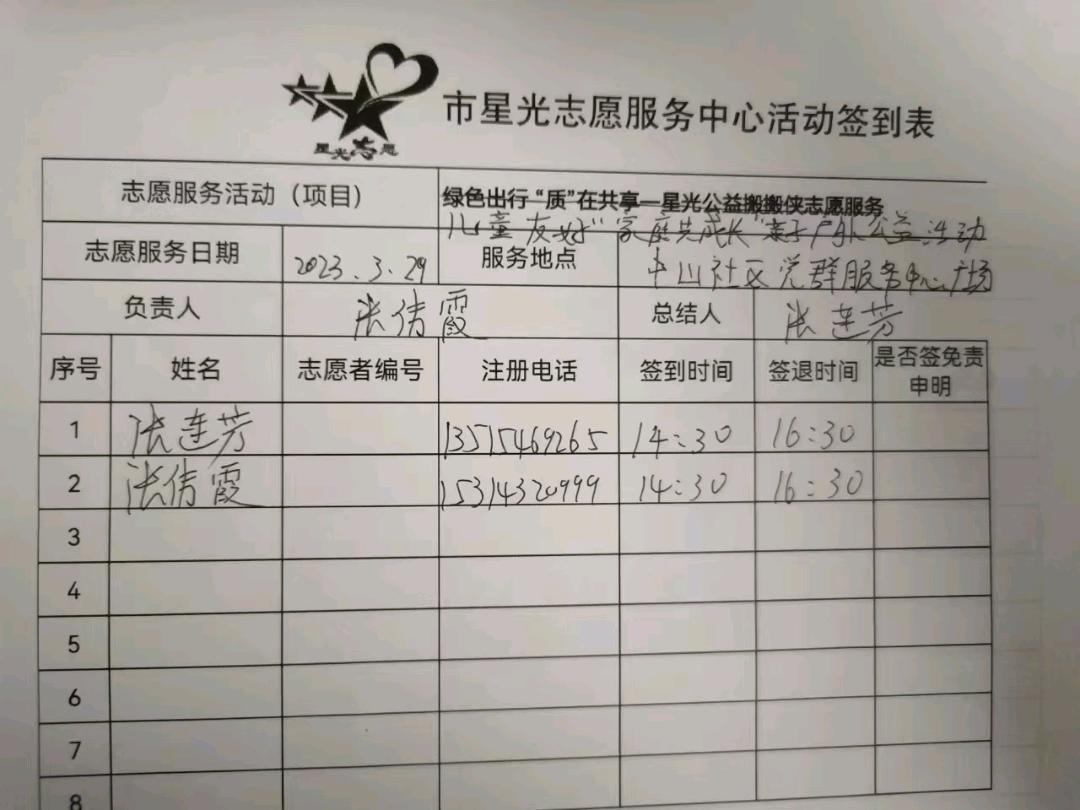 星光志愿
市星光志愿服务中心活动签到表
志愿服务活动（项目） 绿色出行“质”在共享一星光公益搬搬侠志愿服务
儿童友好“家庭共成长”亲子户外公益活动
志愿服务日期 2023.3.29 服务地点 中山社区党群服务中心广场
负责人 张倩霞 总结人 张莲芳
序号 姓名 志愿者编号 注册电话 签到时间 签退时间 是否签免责申明
1 张莲芳 13515469265 14:30 16:30
2 张倩霞 15314320999 14:30 16:30
3
4
5
6
7
8